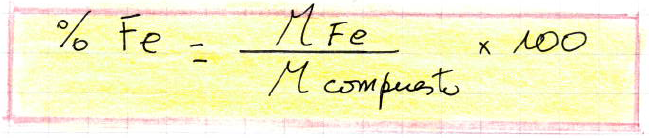 % Fe = M Fe / M compuesto × 100